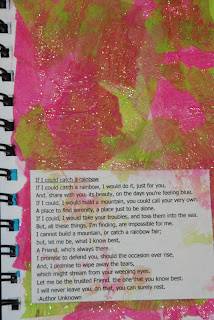 If I could catch a rainbow
If I could catch a rainbow, I would do it, just for you,
And, share with you, its beauty, on the days you're feeling blue.
If I could, I would build a mountain, you could call your very own,
A place to find serenity, a place just to be alone.
If I could, I would take your troubles, and toss them into the sea,
But, all these things, I'm finding, are impossible for me.
I cannot build a mountain, or catch a rainbow fair;
but, let me be, what I know best,
A Friend, who's always there.
I promise to defend you, should the occasion ever rise,
And, I promise to wipe away the tears,
which might stream from your weeping eyes.
Let me be the trusted Friend, the one that you know best.
I will never leave you, on that, you can surely rest.
-Author Unknown